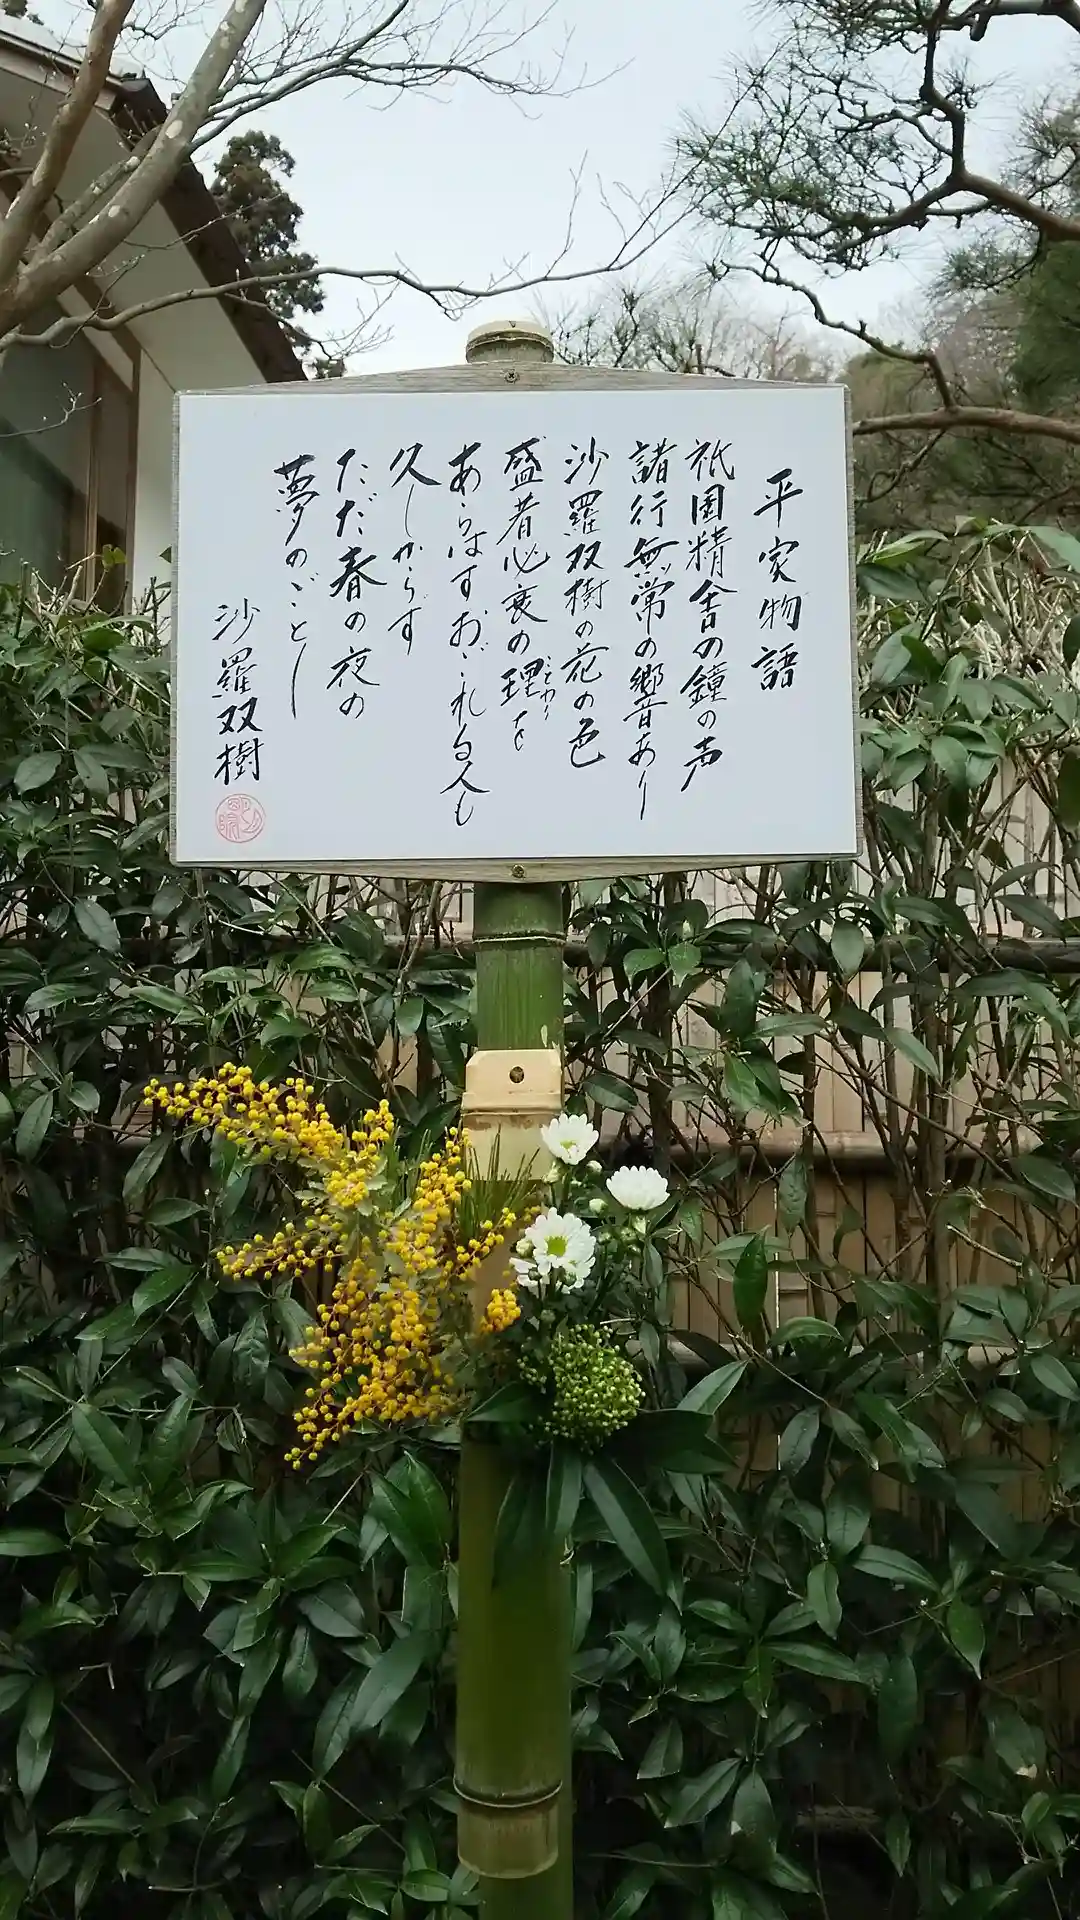 平家物語
祇園精舎の鐘の声
諸行無常の響あり
沙羅双樹の花の色
盛者必衰の理を
ことわり
あらはすおごれる人も
久しからず
ただ春の夜の
夢のごとし
沙羅双樹